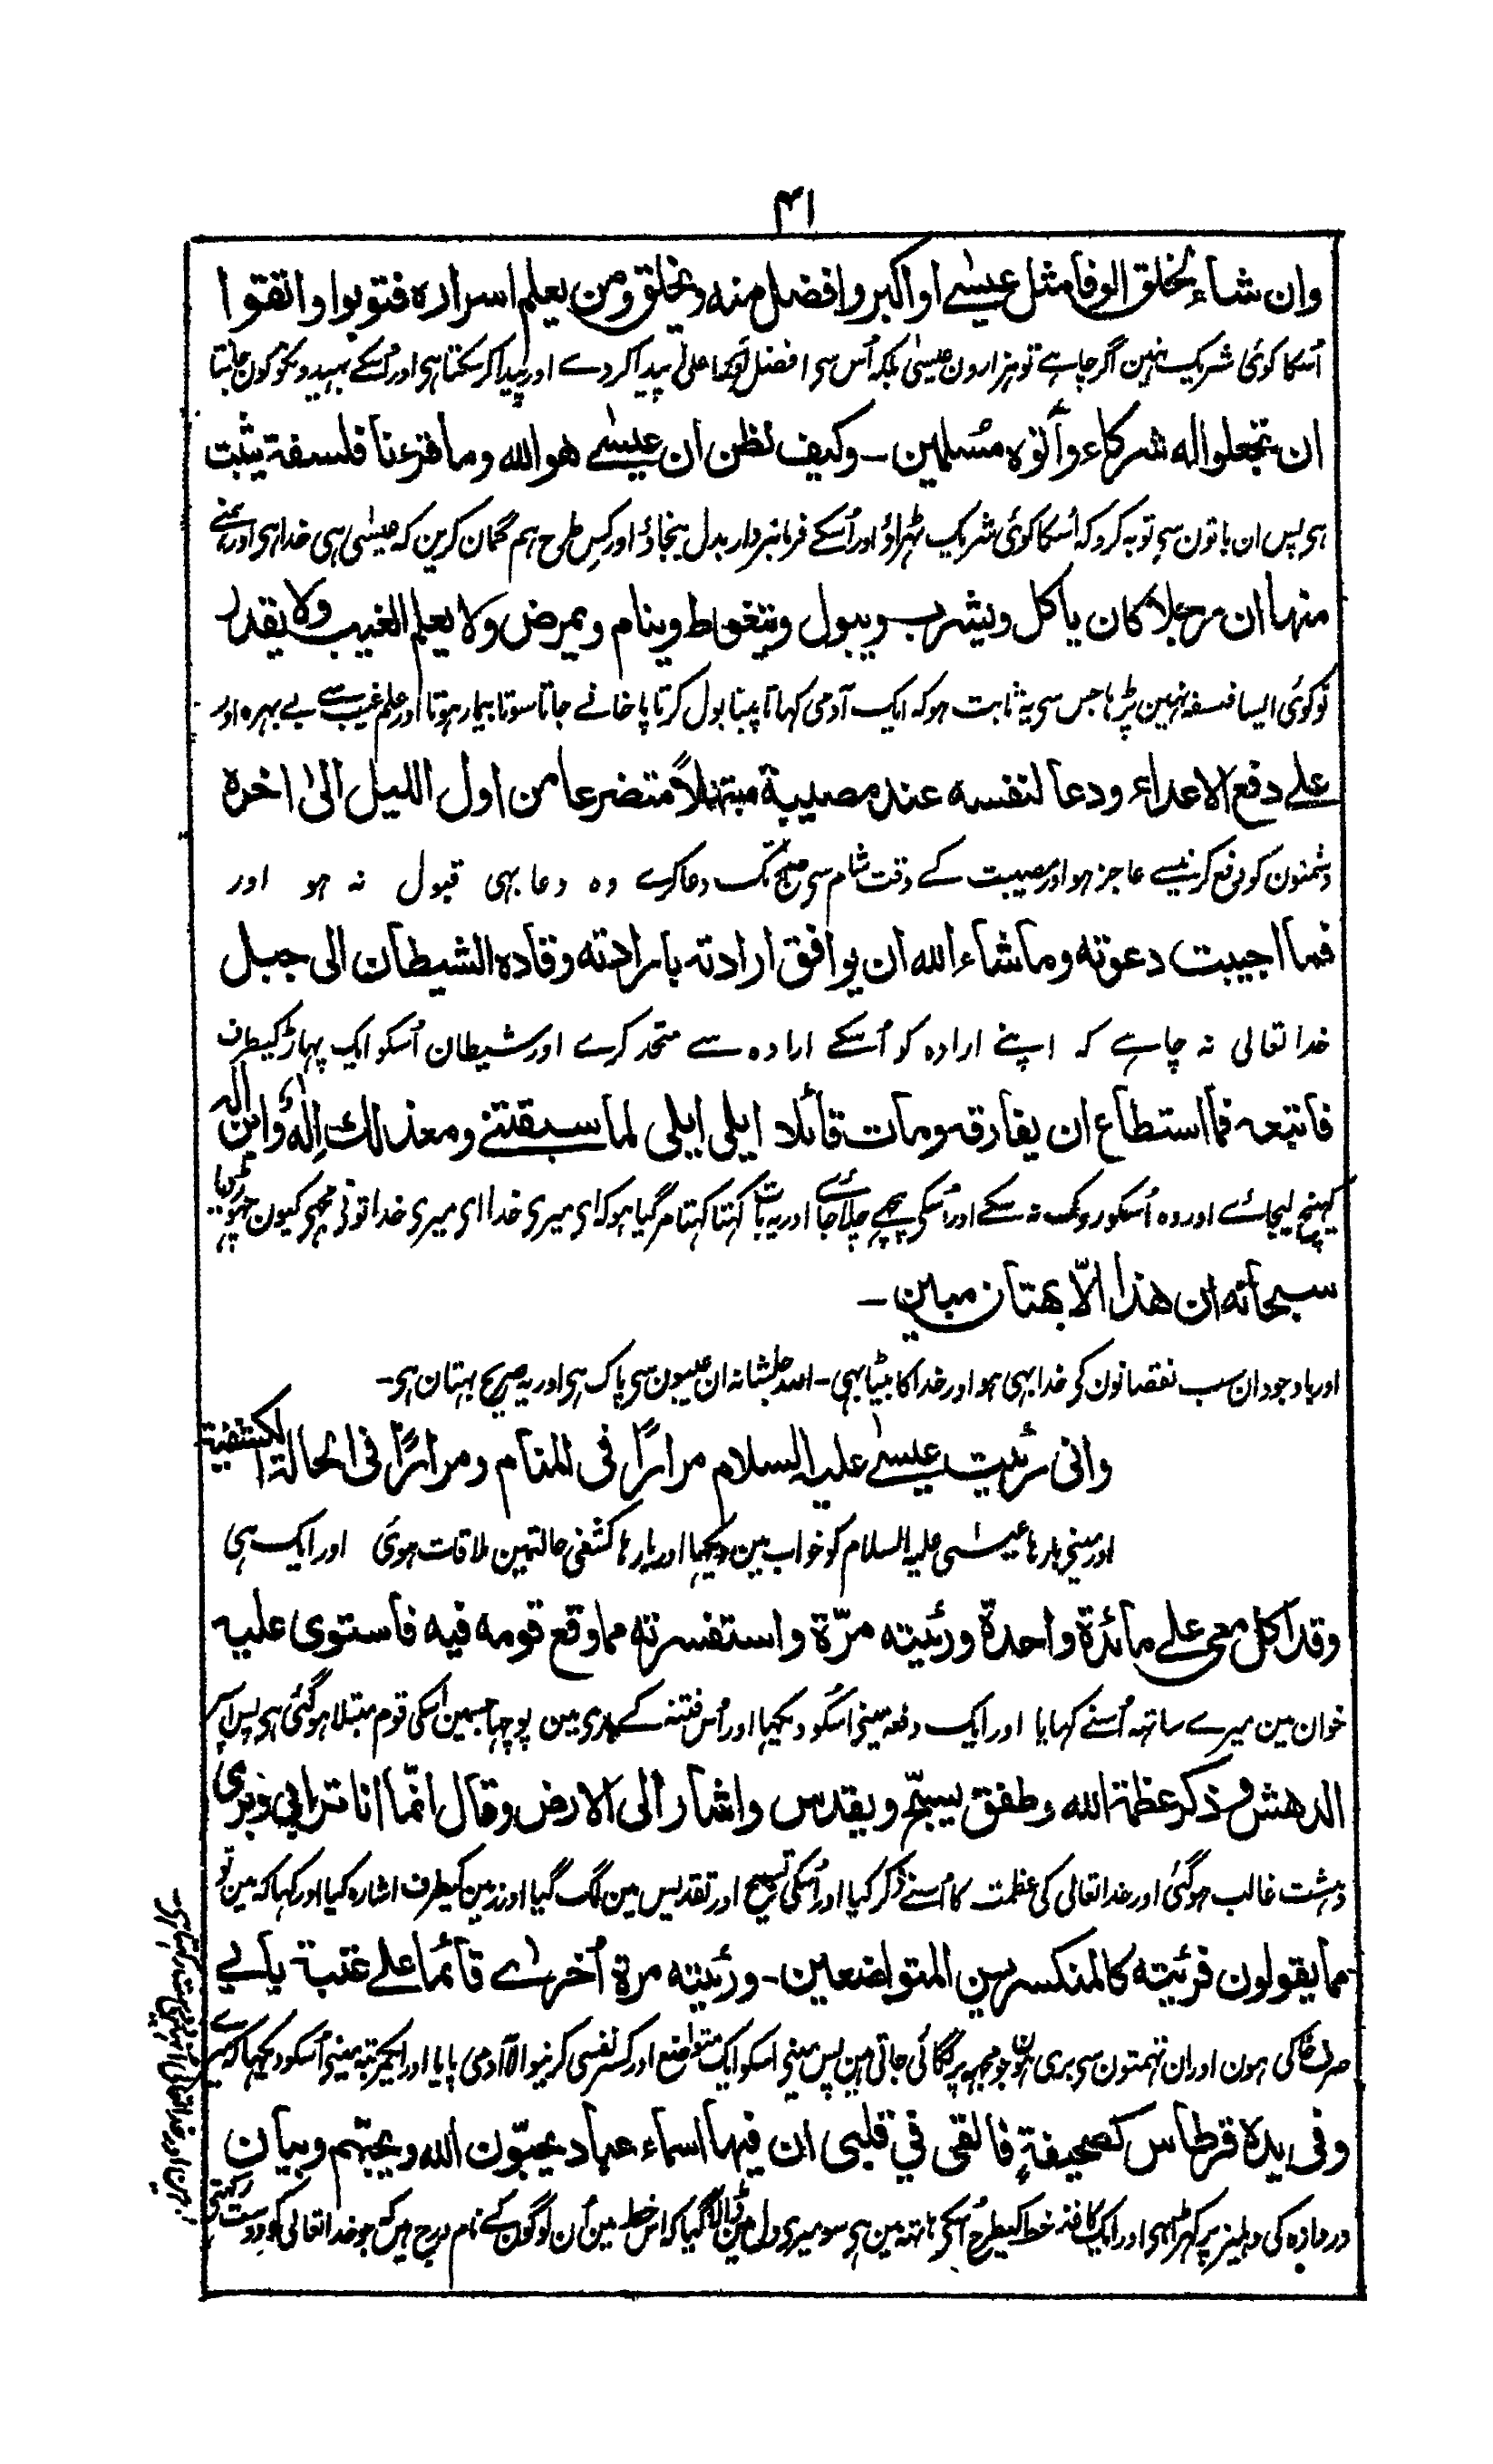 ۴۱
وان شاء یخلق الوفا مثل عیسٰے او اکبر وافضل منه ویخلق ومن یعلم اسراره فتوبوا واتقوا
اُسکا کوئی شریک نہین اگر چاہے تو ہزارون عیسیٰ بلکہ اُس سی افضل پیدا کر دے اور پیدا کر سکتا ہی اور اُسکے بہیدونکو کون جانتا
ان تجعلوا له شرکاء وأتوه مسلمین ـ وکیف نظن ان عیسٰے هو الله وما قرءنا فلسفة یثبت
ہی پس ان باتون سی توبہ کرو کہ اُسکا کوئی شریک ٹہراؤ اور اُسکے فرمانبردار بدل بنجاؤ اور کس طرح ہم گمان کرین کہ عیسیٰ ہی خدا ہی اور ہمنے
منها ان رجلا کان یاکل ویشرب ویبول ویتغوط وینام ویمرض ولا یعلم الغیب ولا یقدر
تو کوئی ایسا فلسفہ نہین پڑہا جس سی یہ ثابت ہو کہ ایک آدمی کہاتا پیتا بول کرتا پاخانے جاتا سوتا بیمار ہوتا اور علم غیب سے بے بہرہ اور
علے دفع الاعداء ودعا لنفسه عند مصیبة مبتهلاً متضرعا من اول اللیل الیٰ اخره
دشمنون کو دفع کرنیسے عاجز ہو اور مصیبت کے وقت شام سی صبح تک دعا کرے وہ دعا بہی قبول نہ ہو اور
فما اجیبت دعوته وماشاء الله ان یوافق ارادته بارادته وقاده الشیطان الی جبل
خدا تعالی نہ چاہے کہ اپنے ارادہ کو اُسکے ارادہ سے متحد کرے اور شیطان اُسکو ایک پہاڑ کیطرف
فاتبعه فما استطاع ان یفارقه ومات قائلا ایلی ایلی لما سبقتنے ومع ذلك اِلٰهٌ وابن اله
کہینچ لیجائے اور وہ اُسکو روک نہ سکے اور اُسکی پیچھے چلا جائے اور یہ بات کہتا کہتا مر گیا ہو کہ ای میری خدا ای میری خدا تونی مجہی کیون چہوڑ دیا
سبحانه ان هذا الّا بهتان مبین ـ
اور باوجود ان سب نقصانون کی خدا بہی ہو اور خدا کا بیٹا بہی ـ اللہ جلشانہ ان عیبون سی پاک ہی اور یہ صریح بہتان ہی ـ
وانی رئیت عیسٰے علیه السلام مرارًا فی المنام ومرارًا فی الحالة الکشفیة
اور مینی بارہا عیسیٰ علیہ السلام کو خواب مین دیکہا اور بارہا کشفی حالتمین ملاقات ہوئی اور ایک ہی
وقد اکل معی علے مائدة واحدة ورئیته مرّة واستفسرته مما وقع قومه فیه فاستوی علیه
خوان مین میرے ساتہہ اُسنے کہایا اور ایک دفعہ مینی اُسکو دیکہا اور اُس فتنہ کے بارہ مین پوچہا جسمین اُسکی قوم مبتلا ہو گئی ہی پس اُسپر
الدهش وذکر عظمة الله وطفق یسبّح ویقدس واشار الی الارض وقال انّما انا ترابی وبری
دہشت غالب ہو گئی اور خدا تعالی کی عظمت کا اُسنے ذکر کیا اور اُسکی تسبیح اور تقدیس مین لگ گیا اور زمین کیطرف اشارہ کیا اور کہا کہ مین تو
مما یقولون فرئیته کالمنکسرین المتواضعین ـ ورئیته مرة اُخرٰے قائما علے عتبة بابی
صرف خاکی ہون اور ان تہمتون سی بری ہون جو مجہپر لگائی جاتی ہین پس مینی اسکو ایک متواضع اور کسر نفسی کرنیوالا آدمی پایا اور ایکمرتبہ مینی اُسکو دیکہا کہ میرے
وفی یده قرطاس کصحیفةٍ فالقی فی قلبی ان فیها اسماء عباد یحبّون الله ویحبّهم وبیان
دروازہ کی دہلیز پر کہڑا ہی اور ایک کاغذ خط کیطرح اُسکی ہاتہہ مین ہی سو میری دل مین ڈالا گیا کہ اس خط مین اُن لوگون کے نام درج ہین کہ جو خدا تعالی کو دوست رکہتی
ہین اور خدا تعالی اُنہین دوست رکہتا ہی